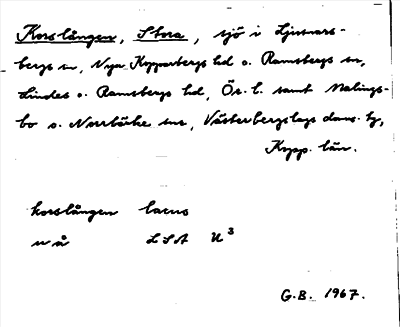 Korslången, Stora, sjö i Ljusnars-
bergs sn, Nya Kopparbergs hd o. Ramsbergs sn,
Lindes o. Ramsbergs hd, Ör. l. samt Malings-
bo o. Norrbärke snr, Västerbergslags doms. tg,
Kopp. län.
korslången lacus
n å LSA U³
G.B. 1967.